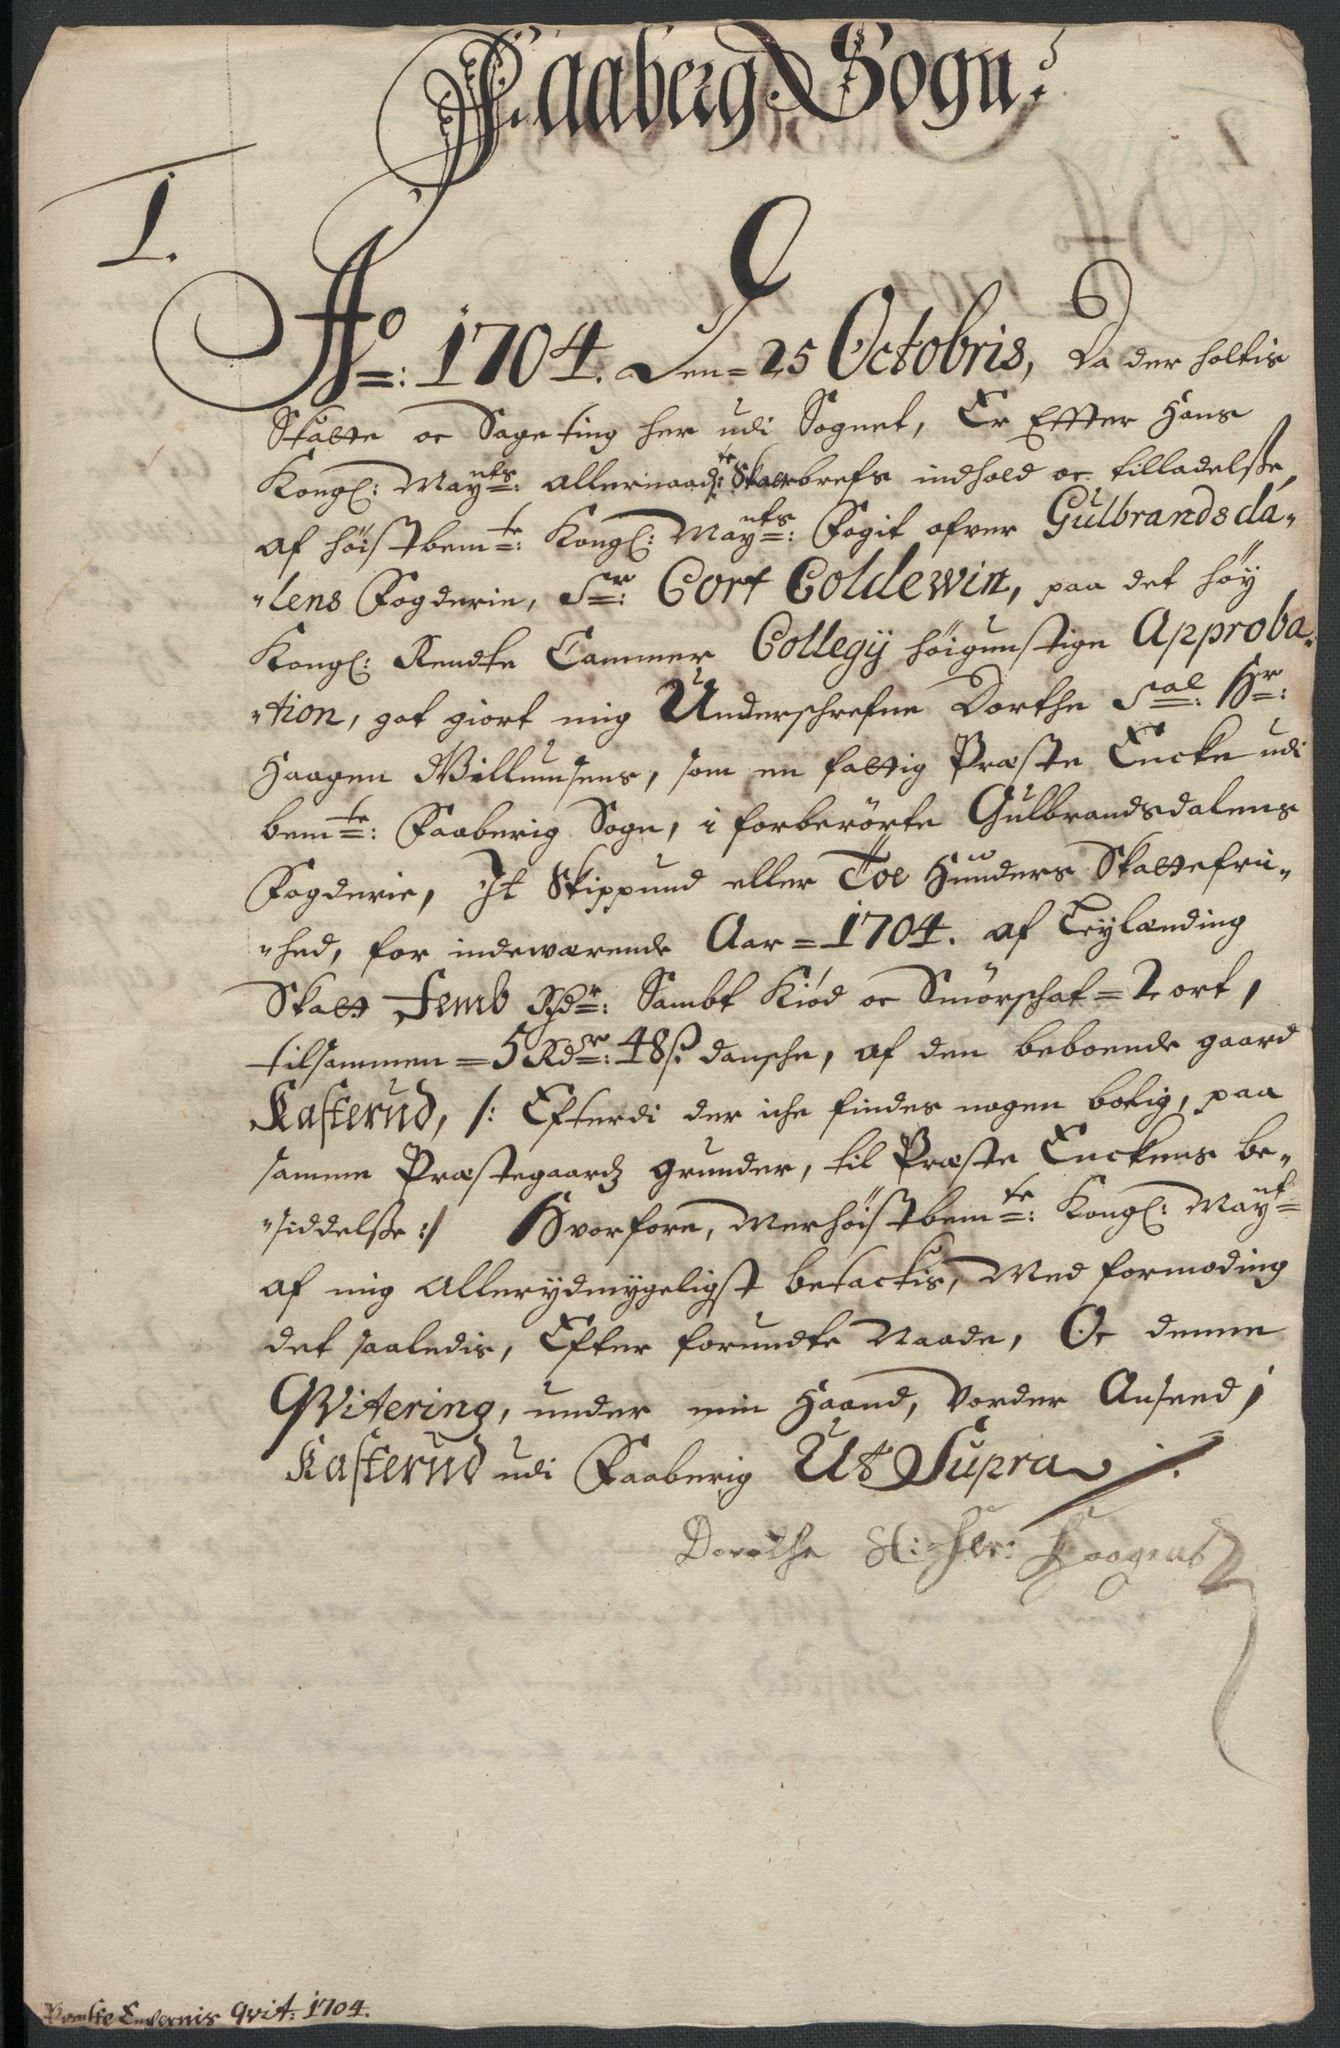 Faaberg Sogn:
1.
Ao: 1704. Den 25 Octobris, Da der holtis
Skatte oc Sageting her udi Sognet, Er Effter Hans
Kongl: Mayts: Allernaadste: Skattebrefs indhold oc tilladelsse,
af høistbemte: Kongl: Mayts: Fogit ofver Gulbrandsda-
"lens Fogderie, Sr: Cort Coldewin, paa det høy
Kongl: Rendte Cammer Collegij høigunstige Approba-
"tion, got giort mig Underschrefne Dorthe Sal: Hr:
Haagen Willumsens, som en fattig Præste Encke udi
bemte: Faaberig Sogn, i forberørte Gulbrandsdalens
Fogderie, It Skippund eller Toe Hunders Skattefri-
"hed, for indeværende Aar = 1704. af Leylænding
Skatt Femb Rdr: Sambt Kiød oc Smørschat = 2 ort,
tilsammen = 5 Rdr: 48 s. dansche, af den beboende gaard
Kasterud, /: Efterdi der iche findes nogen bolig, paa
samme Præstegaardz grunder, til Præste Enckens be-
"siddelsse :/ Hvorfore, Merhøistbemte: Kongl: Mayt
af mig Allerydmygeligst betackis, Med formoding
det saaledis, Efter forundte Naade, Oc denne
Qvitering, under min Haand, vorder Anseed,
Kasterud udi Faaberig Ut Supra /.
Dorethe Sl: Her: Haagens
Præste Enckernis qvit: 1704.